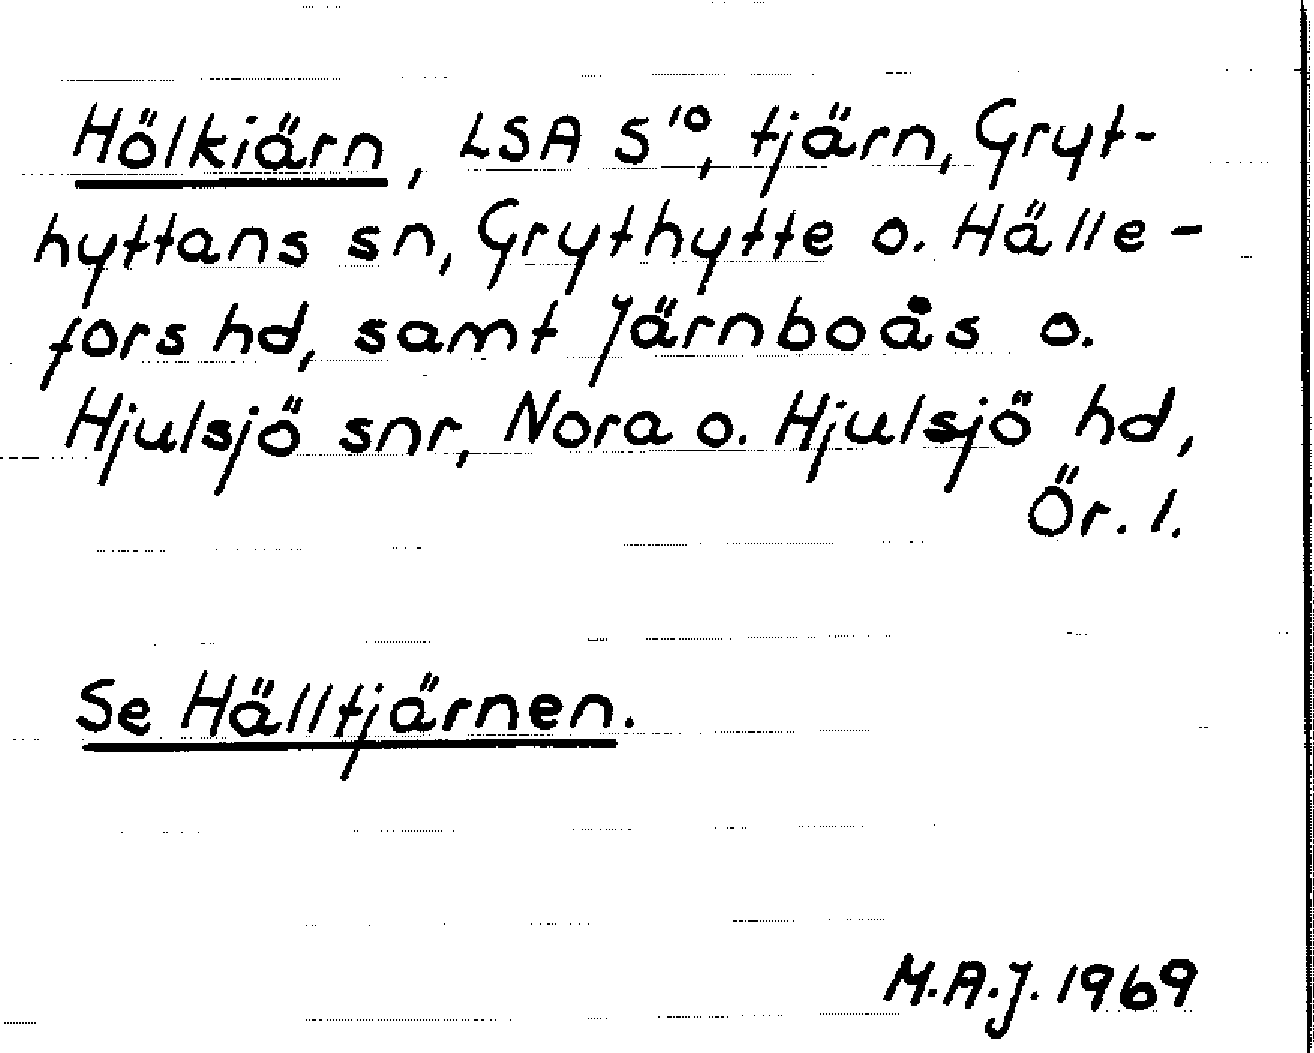 Hölkiärn, LSA S¹⁰, tjärn, Gryt-
hyttans sn, Grythytte o. Hälle-
fors hd, samt Järnboås o.
Hjulsjö snr, Nora o. Hjulsjö hd,
Ör. l.
Se Hälltjärnen.
M.A.J. 1969